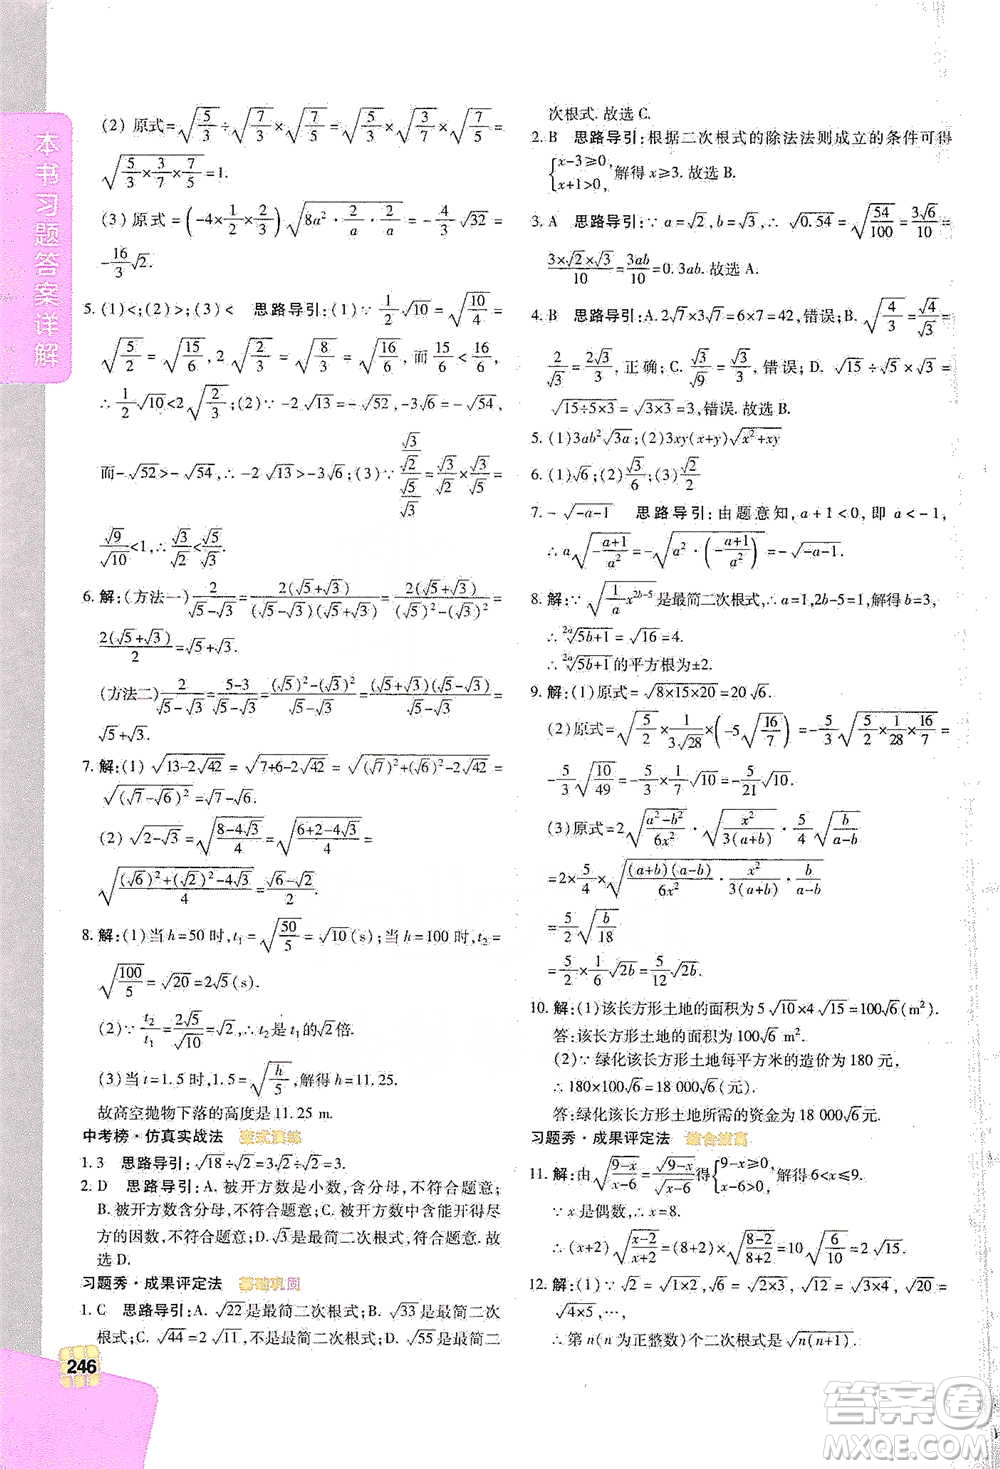 本书习题答案详解
(2) 原式=√(5/3)÷√(7/3)×√(7/5)=√(5/3)×√(3/7)×√(7/5)=
√(5/3×3/7×7/5)=1.
(3) 原式=(-4×1/2×2/3)√(8a²·2/a·2/a)=-4/3√32=
-16/3√2.
5. (1)<;(2)>;(3)< 思路导引:(1)∵1/2√10=√(10/4)=
√(5/2)=√(15/6),2√(2/3)=√(8/3)=√(16/6),而15/6<16/6,
∴1/2√10<2√(2/3);(2)∵-2√13=-√52,-3√6=-√54,
而-√52>-√54,∴-2√13>-3√6;(3)∵(√3/√2)/(√5/√3)=√3/√2×√3/√5=
√9/√10<1,∴√3/√2<√5/√3.
6. 解:(方法一)2/(√5-√3)=2(√5+√3)/((√5-√3)(√5+√3))=2(√5+√3)/((√5)²-(√3)²)=
2(√5+√3)/2=√5+√3.
(方法二)2/(√5-√3)=(5-3)/(√5-√3)=((√5)²-(√3)²)/(√5-√3)=(√5+√3)(√5-√3)/(√5-√3)
=√5+√3.
7. 解:(1)√(13-2√42)=√(7+6-2√42)=√((√7)²+(√6)²-2√42)=
√((√7-√6)²)=√7-√6.
(2) √(2-√3)=√((8-4√3)/4)=√((6+2-4√3)/4)=
√(((√6)²+(√2)²-4√3)/4)=(√6-√2)/2.
8. 解:(1)当h=50时,t₁=√(50/5)=√10(s);当h=100时,t₂=
√(100/5)=√20=2√5(s).
(2)∵t₂/t₁=2√5/√10=√2,∴t₂是t₁的√2倍.
(3)当t=1.5时,1.5=√(h/5),解得h=11.25.
故高空抛物下落的高度是11.25 m.
中考榜·仿真实战法 变式演练
1. 3 思路导引:√18÷√2=3√2÷√2=3.
2. D 思路导引:A. 被开方数是小数,含分母,不符合题意;
B. 被开方数含分母,不符合题意;C. 被开方数中含能开得尽
的因数,不符合题意;D. √3是最简二次根式,符合题意. 故
选D.
习题秀·成果评定法 基础巩固
1. C 思路导引:A. √22是最简二次根式;B. √33是最简二次
根式;C. √44=2√11,不是最简二次根式;D. √55是最简二
246
次根式. 故选C.
2. B 思路导引:根据二次根式的除法法则成立的条件可得
{x-3≥0, x+1>0,解得x≥3. 故选B.
3. A 思路导引:∵a=√2,b=√3,∴√0.54=√(54/100)=3√6/10=
3×√2×√3/10=3ab/10=0.3ab. 故选A.
4. B 思路导引:A. 2√7×3√7=6×7=42,错误;B. √(4/3)=√4/√3=
2/√3,正确;C. √3/√9=√3/3,错误;D. √15÷√5×√3=
√(15÷5×3)=√(3×3)=3,错误. 故选B.
5. (1)3ab²√3a;(2)3xy(x+y)√(x²+xy)
6. (1)√6;(2)√3/6;(3)√2/2
7. -√(-a-1) 思路导引:由题意知,a+1<0,即a<-1,
∴a√(-(a+1)/a²)=-√(a²·(-(a+1)/a²))=-√(-a-1).
8. 解:∵√(1/a x^(2b-5))是最简二次根式,∴a=1,2b-5=1,解得b=3,
∴ ²ᵃ√(5b+1)=√16=4.
∴ ²ᵃ√(5b+1)的平方根为±2.
9. 解:(1)原式=√(8×15×20)=20√6.
(2)原式=√(5/2)×1/(3√28)×(-5√(16/7))=-5/3√(5/2×1/28×16/7)=
-5/3√(10/49)=-5/3×1/7×√10=-5/21√10.
(3)原式=2√((a²-b²)/6x²)·√(x²/3(a+b))·5/4√(b/(a-b))
=2×5/4√((a+b)(a-b)/6x²·x²/3(a+b)·b/(a-b))
=5/2√(b/18)
=5/2×1/6√2b=5/12√2b.
10. 解:(1)该长方形土地的面积为5√10×4√15=100√6(m²).
答:该长方形土地的面积为100√6 m².
(2)∵绿化该长方形土地每平方米的造价为180元,
∴180×100√6=18 000√6(元).
答:绿化该长方形土地所需的资金为18 000√6元.
习题秀·成果评定法 综合拔高
11. 解:由√((9-x)/(x-6))=√(9-x)/√(x-6)得{9-x≥0, x-6>0,解得6<x≤9.
∵x是偶数,∴x=8.
∴(x+2)√((x-2)/(x+2))=(8+2)×√((8-2)/(8+2))=10×√(6/10)=2√15.
12. 解:(1)∵√2=√(1×2),√6=√(2×3),√12=√(4×3),√20=
√(4×5),…,
∴第n(n为正整数)个二次根式是√(n(n+1)).
答案圈
MXQE.COM